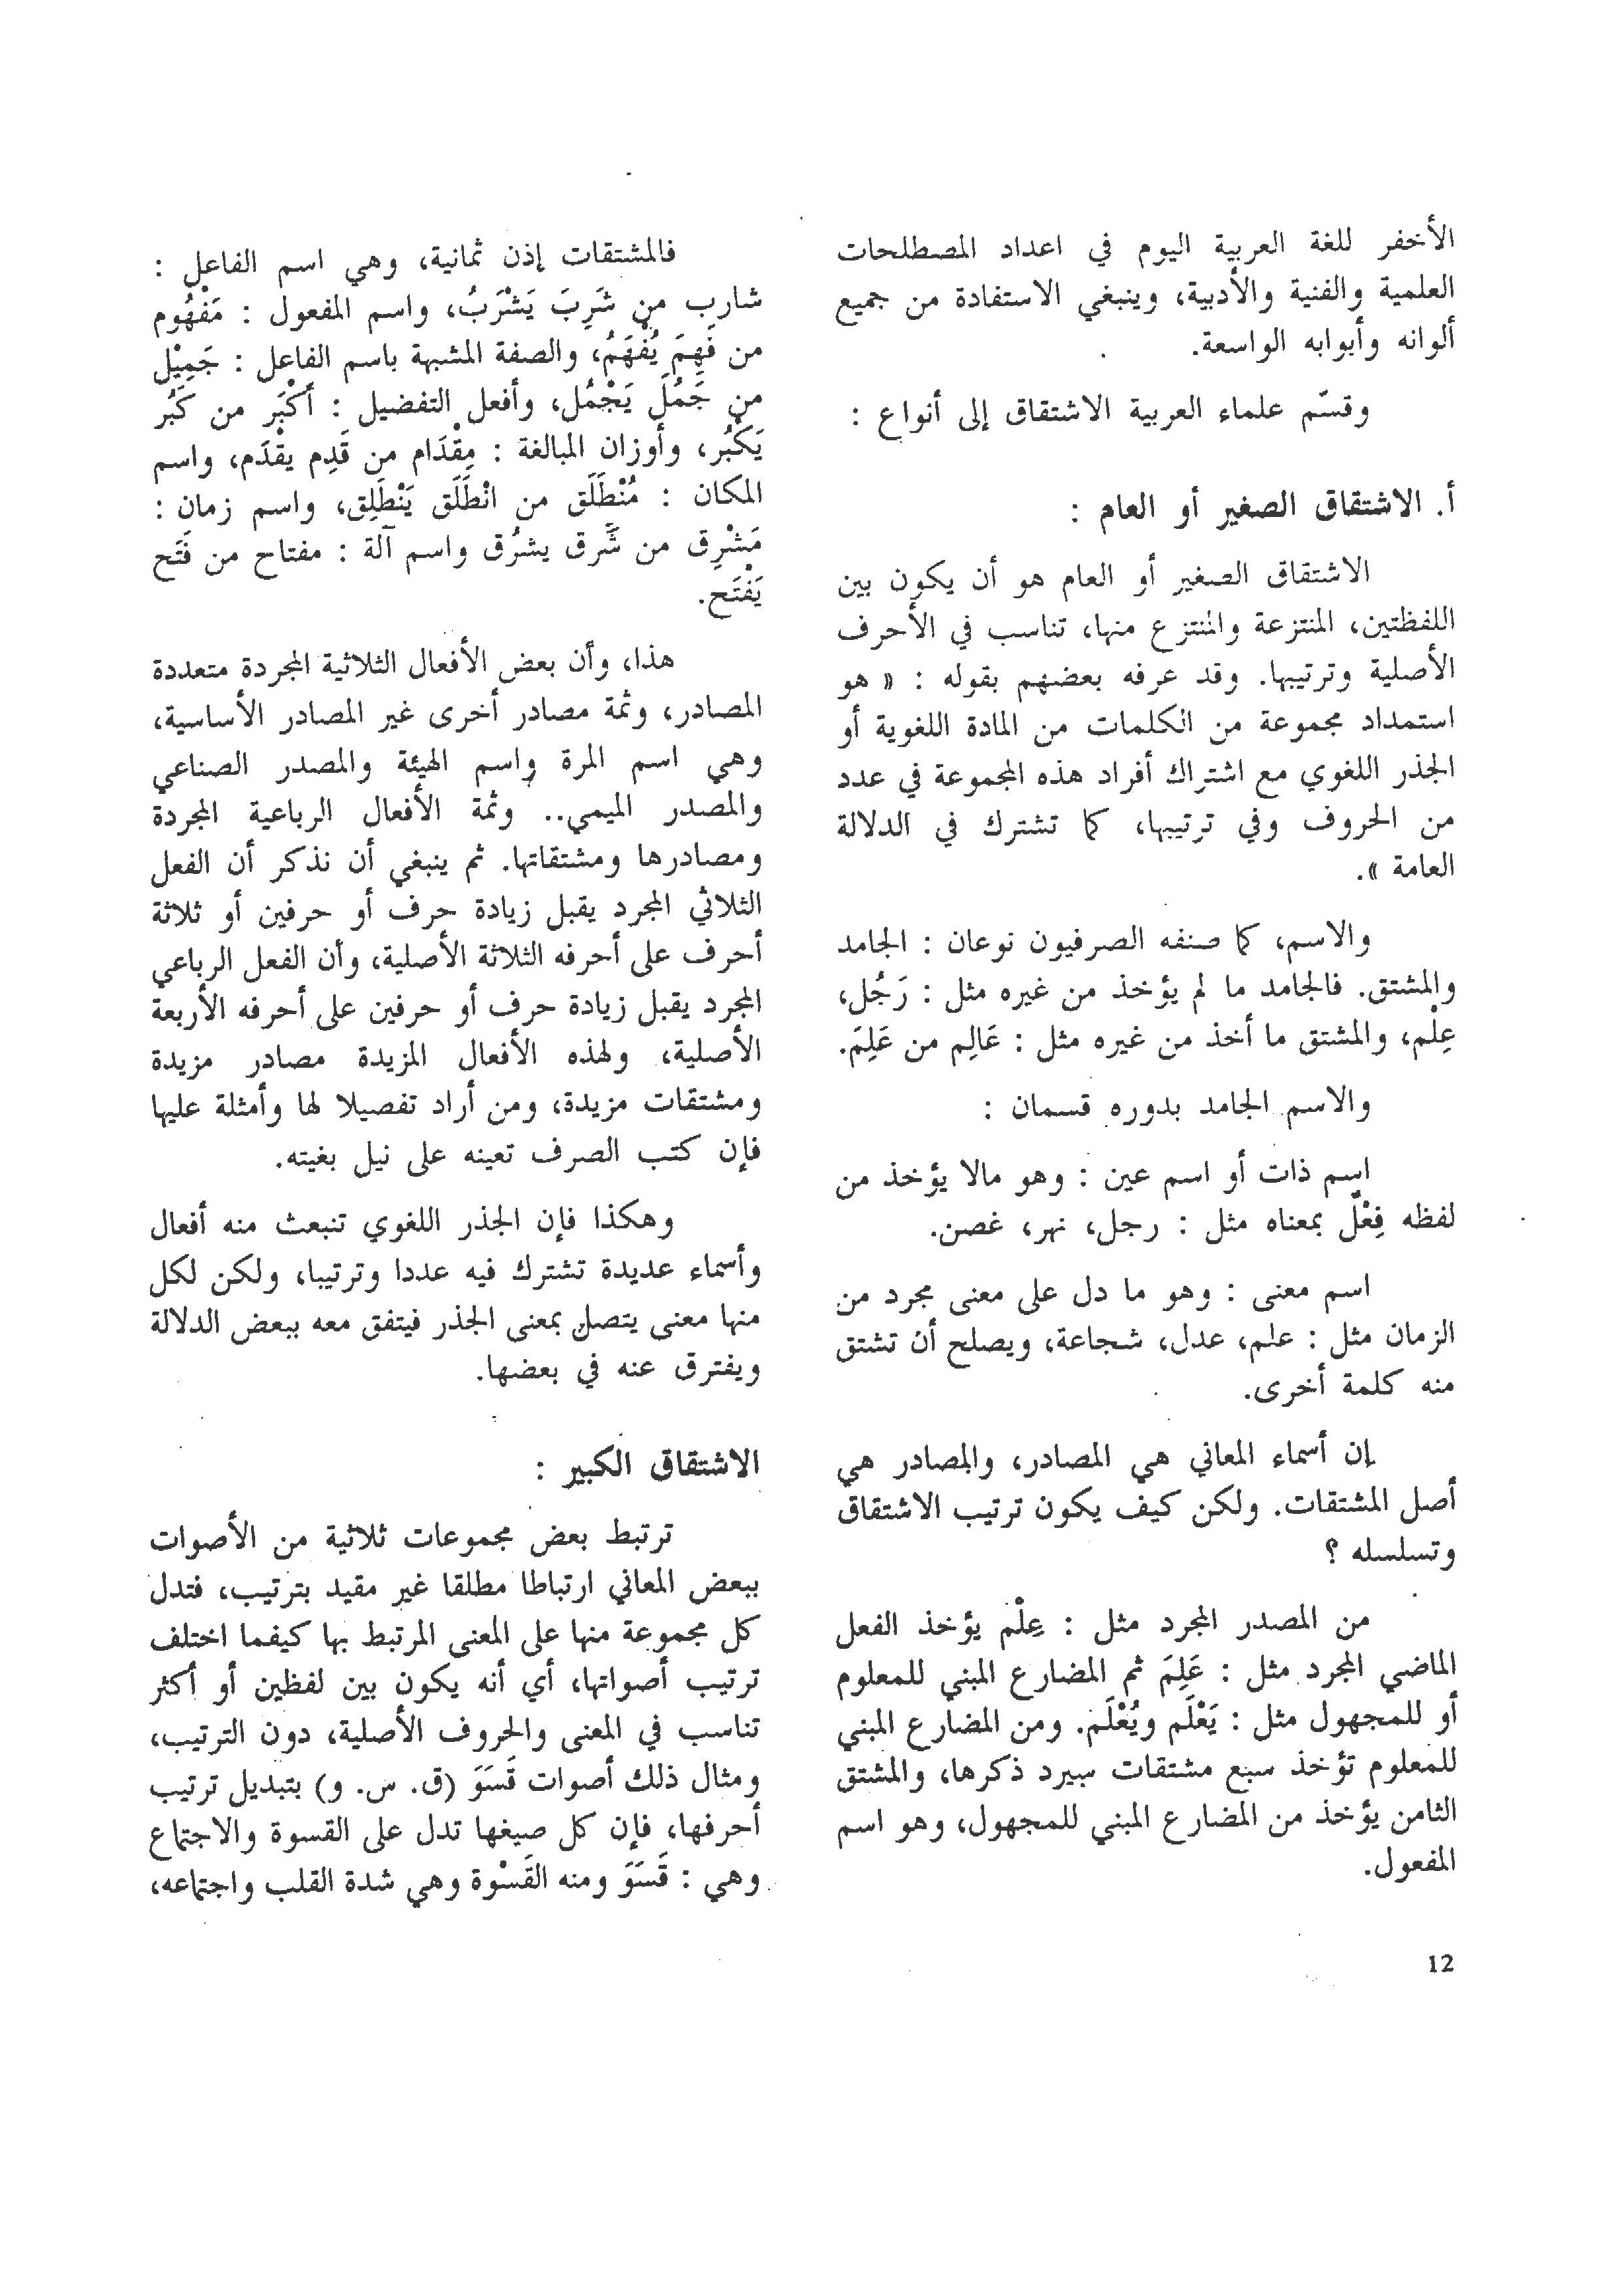 الأخفر للغة العربية اليوم في اعداد المصطلحات
العلمية والفنية والأدبية، وينبغي الاستفادة من جميع
ألوانه وأبوابه الواسعة.
وقسّم علماء العربية الاشتقاق إلى أنواع :
أ. الاشتقاق الصغير أو العام :
الاشتقاق الصغير أو العام هو أن يكون بين
اللفظتين، المنتزعة والمنتزع منها، تناسب في الأحرف
الأصلية وترتيبها. وقد عرفه بعضهم بقوله : « هو
استمداد مجموعة من الكلمات من المادة اللغوية أو
الجذر اللغوي مع اشتراك أفراد هذه المجموعة في عدد
من الحروف وفي ترتيبها، كما تشترك في الدلالة
العامة ».
والاسم، كما صنفه الصرفيون نوعان : الجامد
والمشتق. فالجامد ما لم يؤخذ من غيره مثل : رَجُل،
عِلْم، والمشتق ما أخذ من غيره مثل : عَالِم من عَلِمَ.
والاسم الجامد بدوره قسمان :
اسم ذات أو اسم عين : وهو مالا يؤخذ من
لفظه فِعْلٌ بمعناه مثل : رجل، نهر، غصن.
اسم معنى : وهو ما دل على معنى مجرد من
الزمان مثل : علم، عدل، شجاعة، ويصلح أن تشتق
منه كلمة أخرى.
إن أسماء المعاني هي المصادر، والمصادر هي
أصل المشتقات. ولكن كيف يكون ترتيب الاشتقاق
وتسلسله ؟
من المصدر المجرد مثل : عِلْم يؤخذ الفعل
الماضي المجرد مثل : عَلِمَ ثم المضارع المبني للمعلوم
أو للمجهول مثل : يَعْلَم ويُعْلَم. ومن المضارع المبني
للمعلوم تؤخذ سبع مشتقات سيرد ذكرها، والمشتق
الثامن يؤخذ من المضارع المبني للمجهول، وهو اسم
المفعول.
فالمشتقات إذن ثمانية، وهي اسم الفاعل :
شارب من شَرِبَ يَشْرَبُ، واسم المفعول : مَفْهُوم
من فَهِمَ يُفْهَمُ، والصفة المشبهة باسم الفاعل : جَمِيْل
من جَمُلَ يَجْمُل، وأفعل التفضيل : أَكْبَر من كَبُر
يَكْبُر، وأوزان المبالغة : مِقْدَام من قَدِم يقْدَم، واسم
المكان : مُنْطَلَق من انْطَلَق يَنْطَلِق، واسم زمان :
مَشْرِق من شَرق يشرُق واسم آلة : مفتاح من فَتَح
يَفْتَح.
هذا، وأن بعض الأفعال الثلاثية المجردة متعددة
المصادر، وثمة مصادر أخرى غير المصادر الأساسية،
وهي اسم المرة واسم الهيئة والمصدر الصناعي
والمصدر الميمي.. وثمة الأفعال الرباعية المجردة
ومصادرها ومشتقاتها. ثم ينبغي أن نذكر أن الفعل
الثلاثي المجرد يقبل زيادة حرف أو حرفين أو ثلاثة
أحرف على أحرفه الثلاثة الأصلية، وأن الفعل الرباعي
المجرد يقبل زيادة حرف أو حرفين على أحرفه الأربعة
الأصلية، ولهذه الأفعال المزيدة مصادر مزيدة
ومشتقات مزيدة، ومن أراد تفصيلا لها وأمثلة عليها
فإن كتب الصرف تعينه على نيل بغيته.
وهكذا فإن الجذر اللغوي تنبعث منه أفعال
وأسماء عديدة تشترك فيه عددا وترتيبا، ولكن لكل
منها معنى يتصل بمعنى الجذر فيتفق معه ببعض الدلالة
ويفترق عنه في بعضها.
الاشتقاق الكبير :
ترتبط بعض مجموعات ثلاثية من الأصوات
ببعض المعاني ارتباطا مطلقا غير مقيد بترتيب، فتدل
كل مجموعة منها على المعنى المرتبط بها كيفما اختلف
ترتيب أصواتها، أي أنه يكون بين لفظين أو أكثر
تناسب في المعنى والحروف الأصلية، دون الترتيب،
ومثال ذلك أصوات قَسَوَ (ق. س. و) بتبديل ترتيب
أحرفها، فإن كل صيغها تدل على القسوة والاجتماع
وهي : قَسَوَ ومنه القَسْوة وهي شدة القلب واجتماعه،
12